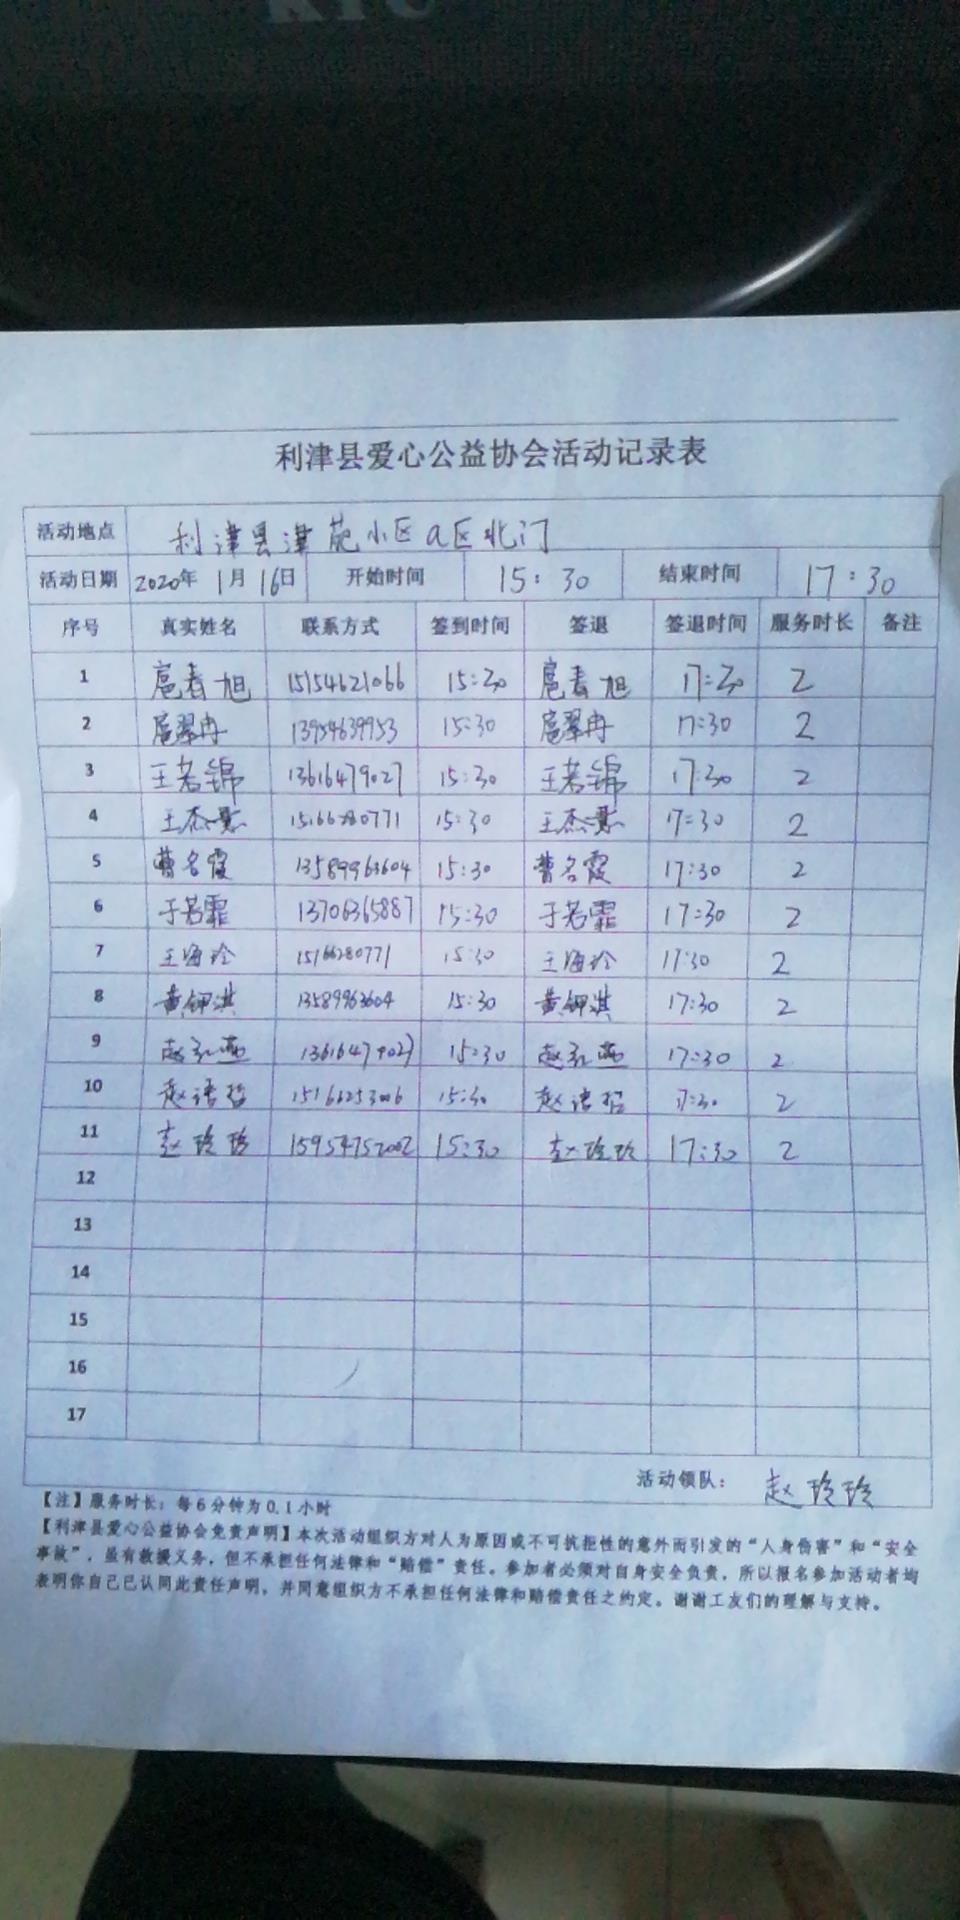 利津县爱心公益协会活动记录表
活动地点 利津县津苑小区a区北门
活动日期 2020年 1月 16日 开始时间 15:30 结束时间 17:30
序号 真实姓名 联系方式 签到时间 签退 签退时间 服务时长 备注
1 扈春旭 15154621066 15:30 扈春旭 17:30 2
2 扈翠冉 13954639953 15:30 扈翠冉 17:30 2
3 王若锦 13616479027 15:30 王若锦 17:30 2
4 王杰 15166280771 15:30 王杰 17:30 2
5 曹名霞 13589963604 15:30 曹名霞 17:30 2
6 于若霏 13706365887 15:30 于若霏 17:30 2
7 王海玲 15166280771 15:30 王海玲 17:30 2
8 黄钾淇 13589963604 15:30 黄钾淇 17:30 2
9 赵红燕 13616479027 15:30 赵红燕 17:30 2
10 赵 15:30 赵 17:30 2
11 赵玲玲 15954752002 15:30 赵玲玲 17:30 2
12
13
14
15
16
17
活动领队： 赵玲玲
【注】服务时长：每6分钟为0.1小时
【利津县爱心公益协会免责声明】本次活动组织方对人为原因或不可抗拒性的意外而引发的“人身伤害”和“安全
事故”，虽有救援义务，但不承担任何法律和“赔偿”责任。参加者必须对自身安全负责，所以报名参加活动者均
表明你自己已认同此责任声明，并同意组织方不承担任何法律和赔偿责任之约定。谢谢工友们的理解与支持。